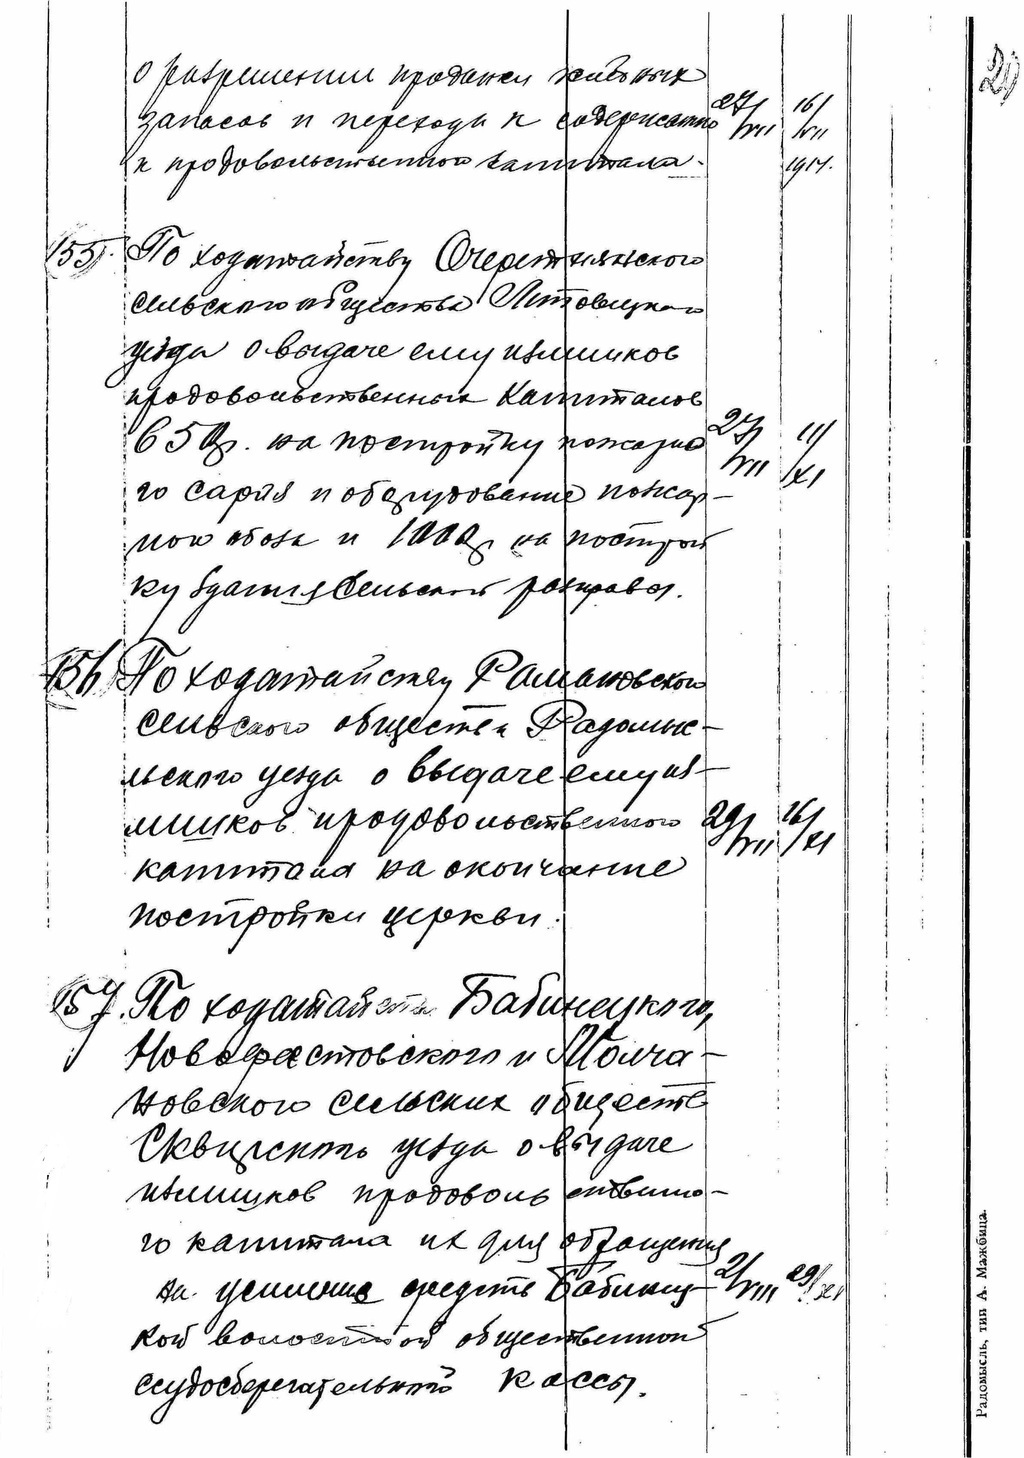 20
о разрешении продажи хлебных
запасов и перехода к
к продовольственного капитала. 27/VII 16/VII 1917.
155. По ходатайству Очеретнянского
сельского общества Липовецкого
уезда о выдаче ему излишков
продовольственных капиталов
650р. на постройку пожарно 27/VII 11/XI
го сарая и оборудование пожар-
ного обоза и 1000р на построй
ку здания Сельской расправы.
156 По ходатайству Романовского
сельского общества Радомыс-
льского уезда о выдаче ему из-
лишков продовольственного 29/VII 26/XI
капитала на окончание
постройки церкви.
157. По ходатайств Бабинецкого,
Новофастовского и Молча-
новского сельских обществ
Сквирского уезда о выдаче
излишков продовольственно-
го капитала их для обращения
на усиление средств Бабинец- 2/VIII 29/XI
кой волостной общественной
ссудосберегательной кассы.
Радомысль, тип А. Мажбица.